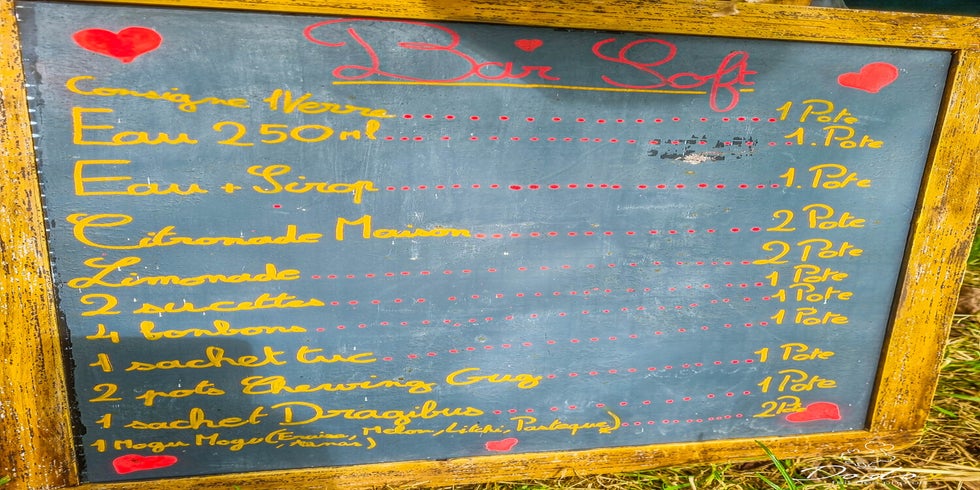 Bar Soft
Consigne 1 Verre 1 Pote
Eau 250 ml 1. Pote
Eau + Sirop 1. Pote
Citronade Maison 2 Pote
Limonade 2 Pote
2 sucettes 1 Pote
4 bonbons 1 Pote
1 sachet tuc 1 Pote
2 pots Chewing Gug 1 Pote
1 sachet Dragibus 1 Pote
1 Mogu Mogu (Fraise, Melon, Litchi, Pasteque, Raisin) 2 Pote